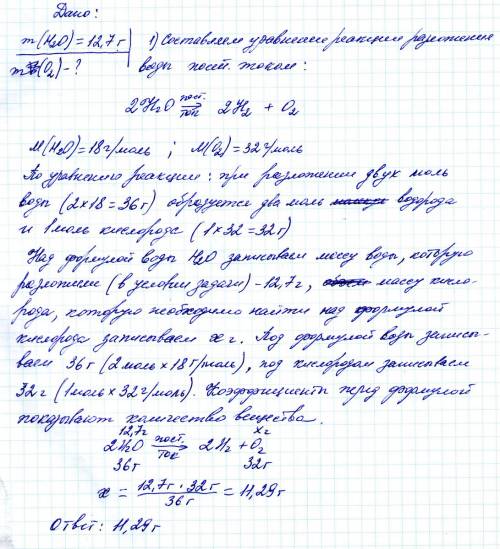 Дано:
m(H₂O) = 12,7 г
m(O₂) - ?
1) Составляем уравнение реакции разложения
воды пост. током:
2H₂O пост. ток → 2H₂ + O₂
M(H₂O) = 18 г/моль ; M(O₂) = 32 г/моль
По уравнению реакции: при разложении двух моль
воды (2×18 = 36 г) образуется два моль водорода
и 1 моль кислорода (1×32 = 32 г)
Над формулой воды H₂O записываем массу воды, которую
разложили (в условии задачи) – 12,7 г, массу кисло-
рода, которую необходимо найти над формулой
кислорода записываем x г. Под формулой воды записы-
ваем 36 г (2 моль × 18 г/моль), под кислородом записываем
32 г (1 моль × 32 г/моль). Коэффициенты перед формулой
показывают количество вещества.
12,7 г x г
2H₂O пост. ток → 2H₂ + O₂
36 г 32 г
x = 12,7 г · 32 г / 36 г = 11,29 г
Ответ: 11,29 г